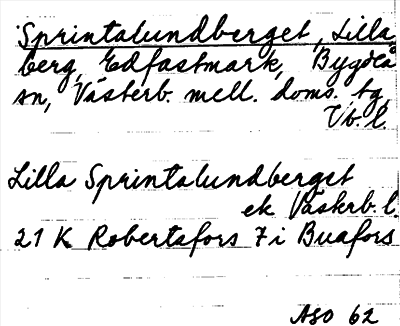 Sprintalundberget, Lilla
berg, Edfastmark, Bygdeå
sn, Västerb. mell. doms. tg,
Vb. l.
Lilla Sprintalundberget
ek Västerb. l.
21 K Robertsfors 7 i Buafors
ASO 62